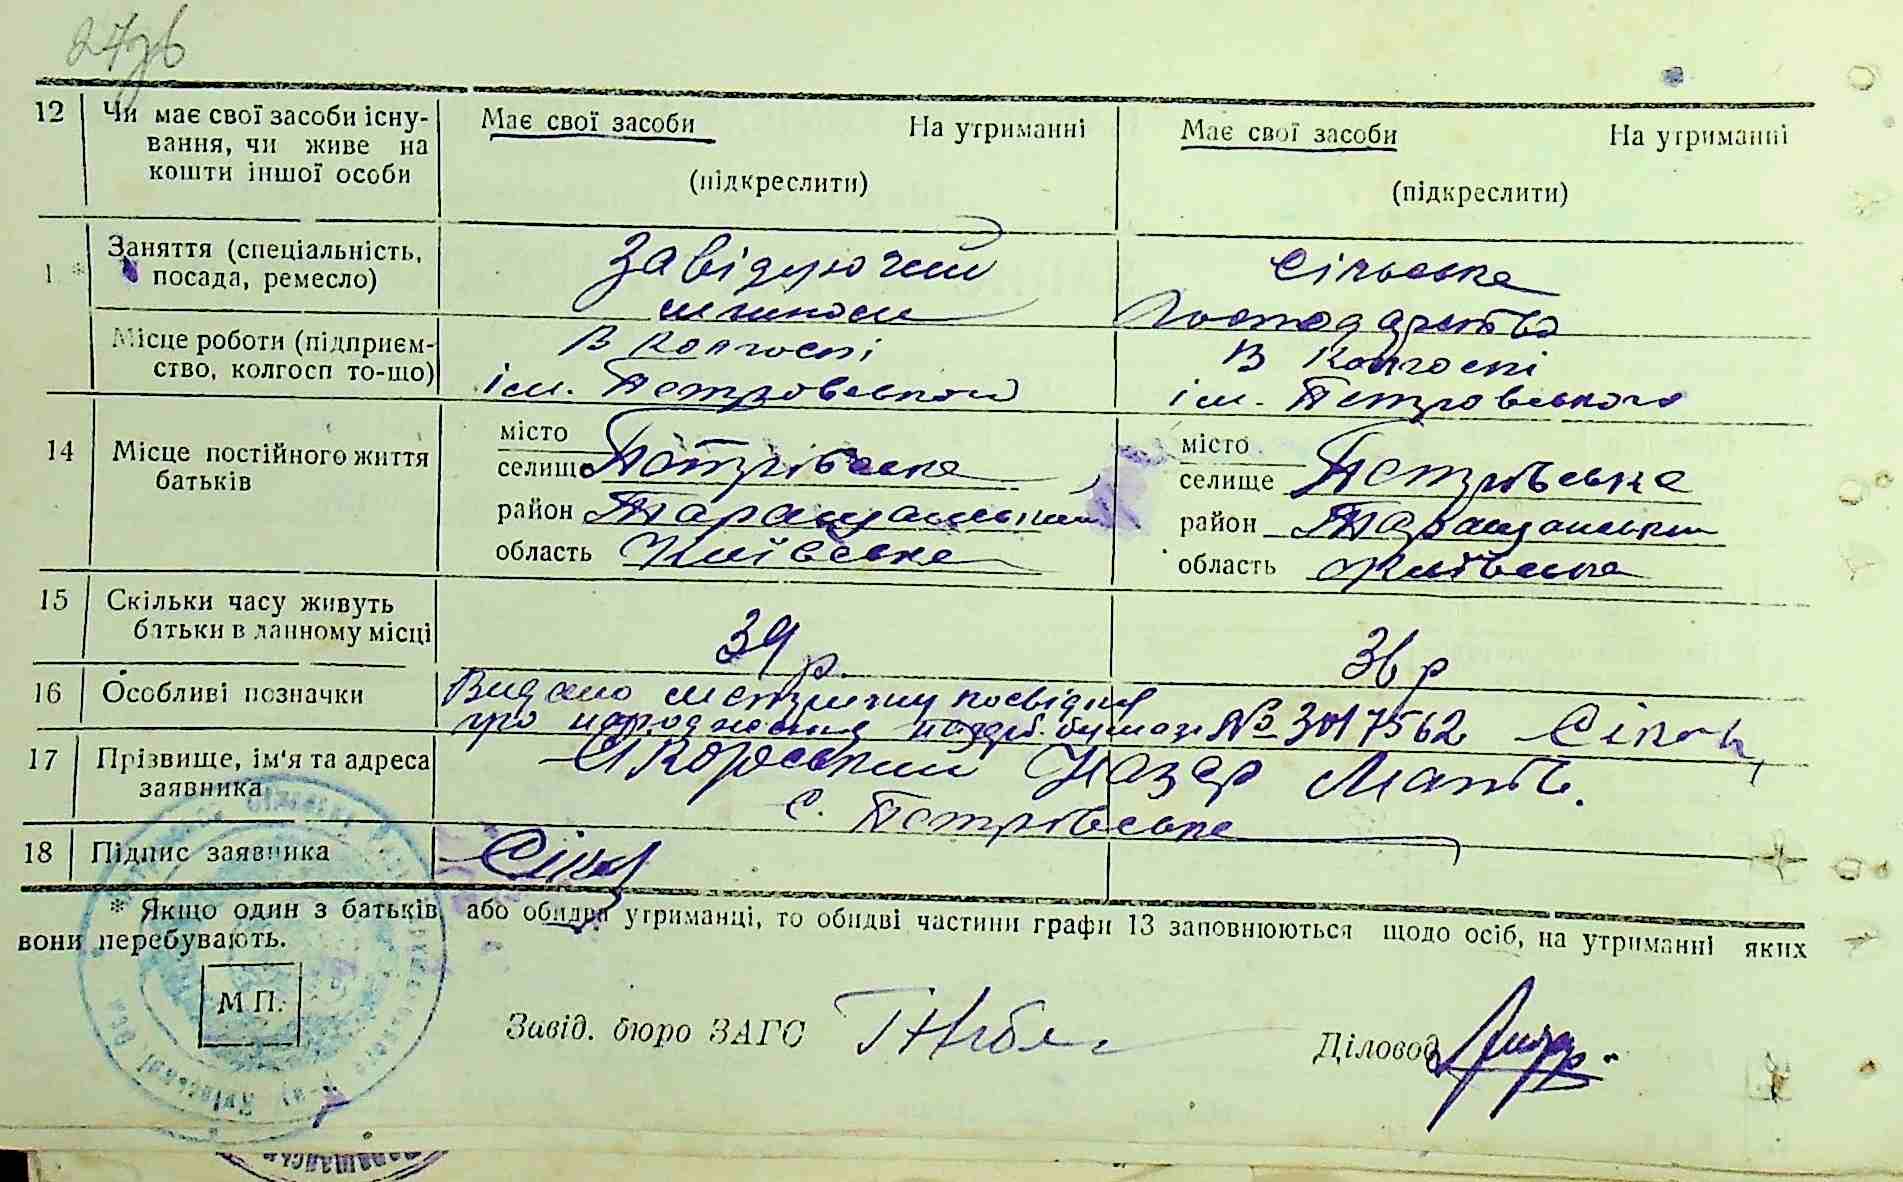 27зв
12 Чи має свої засоби існу- Має свої засоби На утриманні Має свої засоби На утриманні
вання, чи живе на
кошти іншої особи (підкреслити) (підкреслити)
1 * Заняття (спеціальність, Завідуючий Сільське
посада, ремесло) млином Господарство
Місце роботи (підприєм- В колгоспі В колгоспі
ство, колгосп то-що) ім. Петровського ім. Петровського
14 Місце постійного життя місто місто
батьків селище Петрівське селище Петрівське
район Таращанський район Таращанський
область Київська область Київська
15 Скільки часу живуть
батьки в данному місці 39 р. 36 р
16 Особливі позначки Видано метричну посвідку
про народження №3017562
17 Прізвище, ім'я та адреса Назар
заявника с. Петрівське
18 Підпис заявника
* Якщо один з батьків або обидва утриманці, то обидві частини графи 13 заповнюються щодо осіб, на утриманні яких
вони перебувають.
М.П.
Завід. бюро ЗАГС Діловод